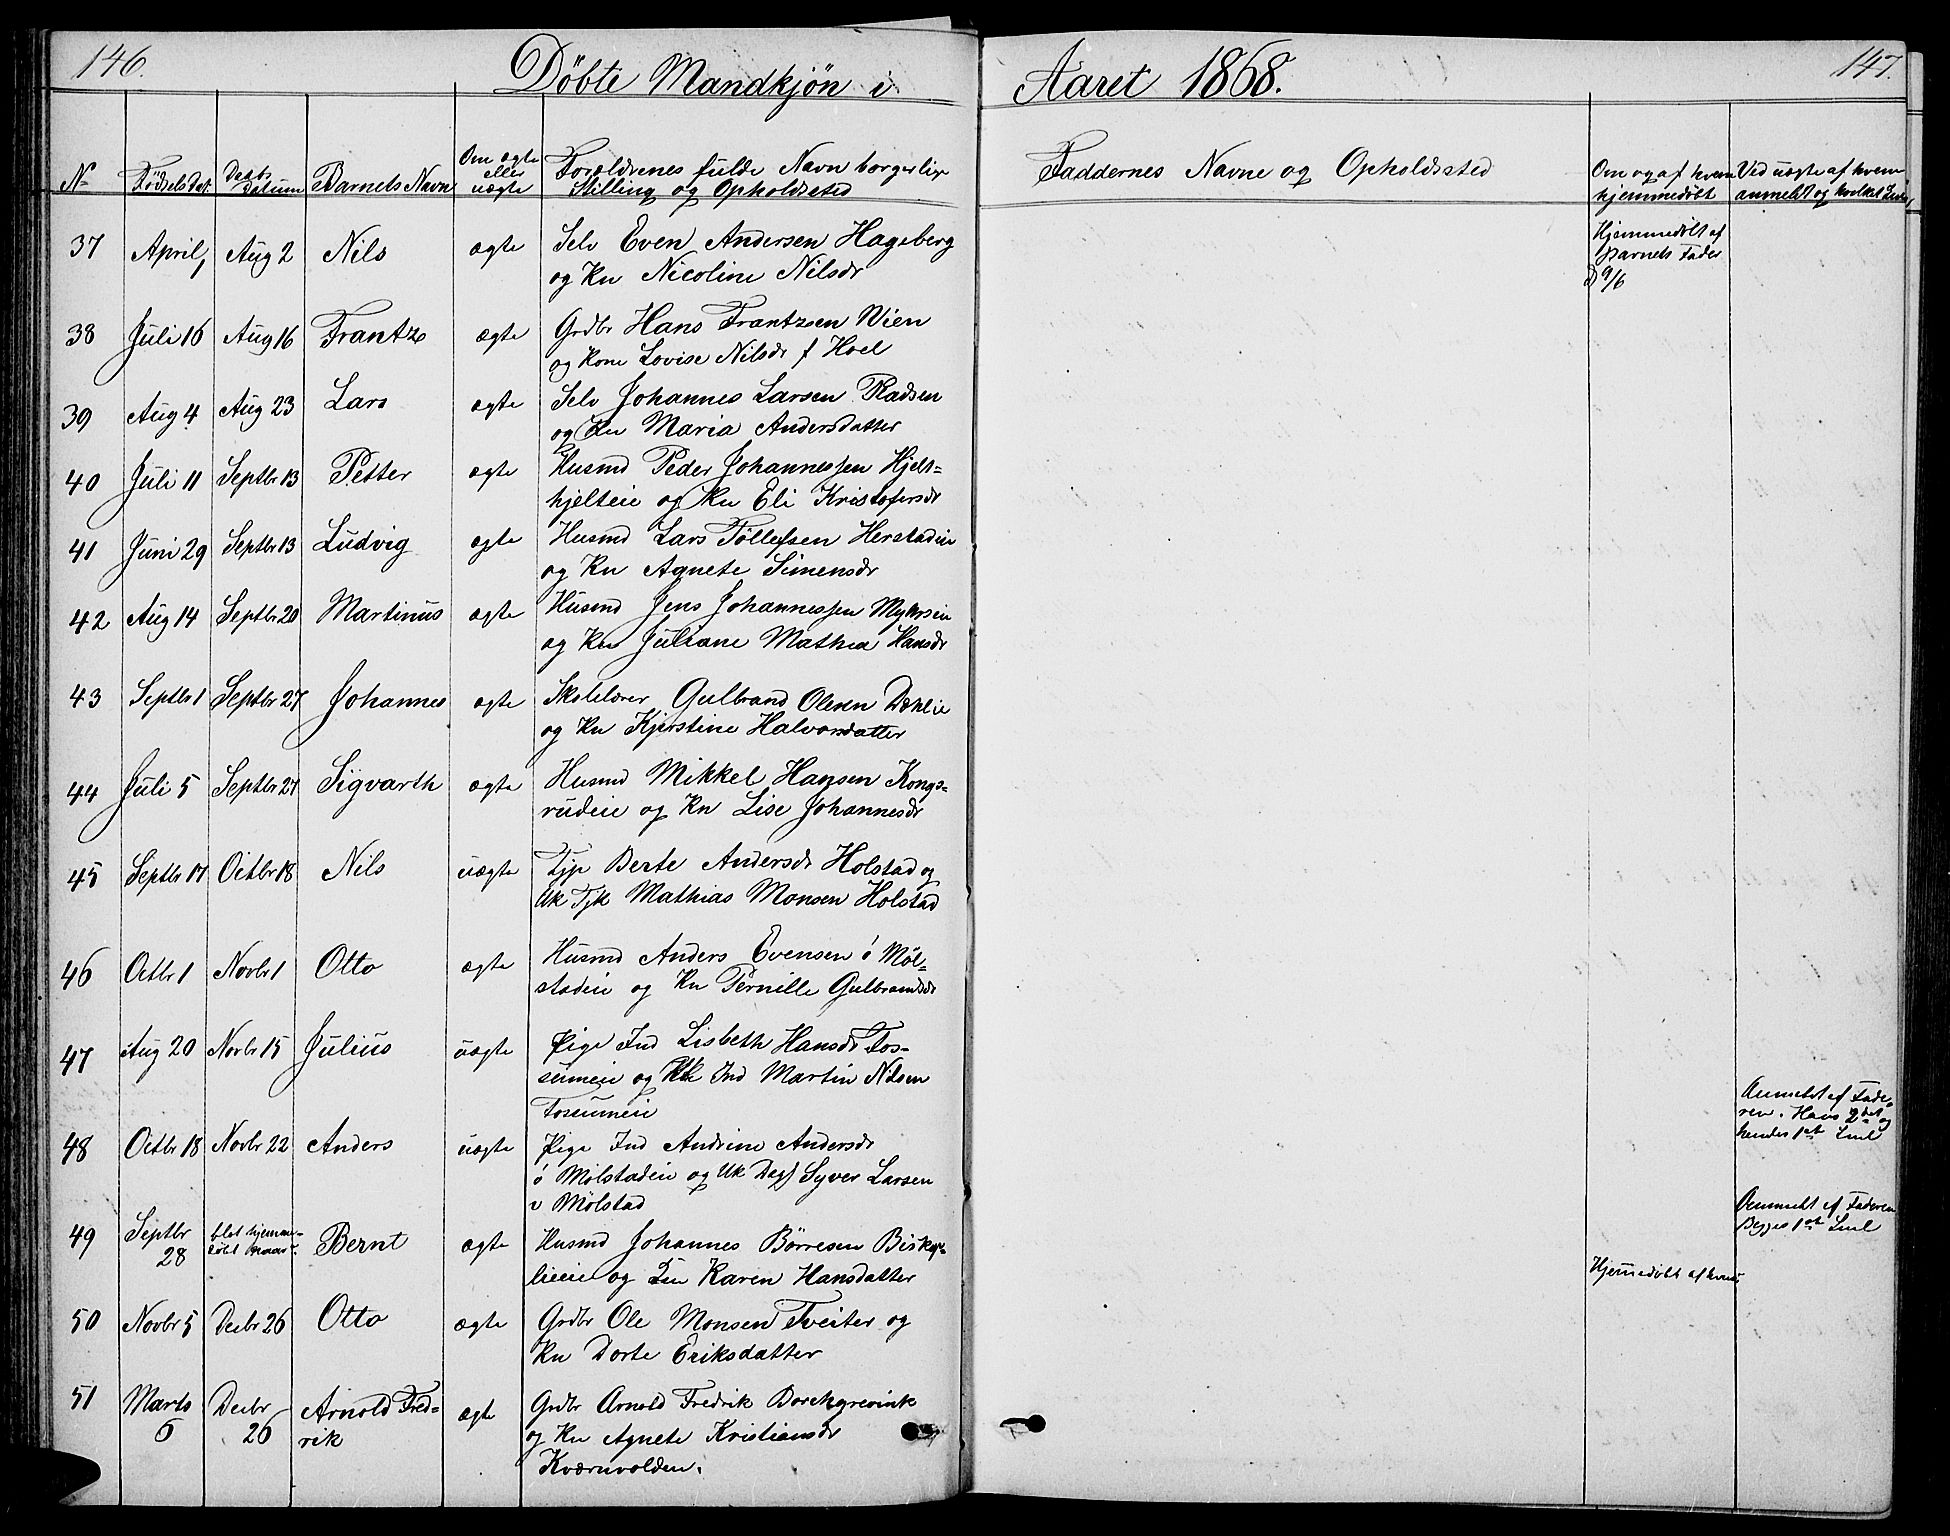 146.
Döbte Mandkjøn i
Aaret 1868.
147.
N° Födsels Dat. Daabs Datum Barnets Navn Om ægte eller uægte Forældrenes fulde Navn borgerlige Stilling og Opholdssted
Faddernes Navne og Opholdssted Om og af hvem hjemmedøbt Ved uægte af hvem anmeldt og hvilket Leie
37 April 1 Aug 2 Nils ægte Selv Even Andersen Hageberg
og Kn Nicoline Nilsdr
Hjemmedøbt af
Barnets Fader
d 9/6
38 Juli 16 Aug 16 Frantz ægte Grdbr Hans Frantzsen Wien
og Kone Lovise Nilsdr f Hoel
39 Aug 4 Aug 23 Lars ægte Selv Johannes Larsen Radsen
og Kn Maria Andersdatter
40 Juli 11 Septbr 13 Petter ægte Husmd Peder Johannessen Hjelt=
hjelteie og Kn Eli Kristofersdr
41 Juni 29 Septbr 13 Ludvig ægte Husmd Lars Töllefsen Herstadeie
og Kn Agnete Simensdr
42 Aug 14 Septbr 20 Martinus ægte Husmd Jens Johannessen
og Kn Juliane Mathea Hansdr
43 Septbr 1 Septbr 27 Johannes ægte Skolelærer Gulbrand Olesen Dæhlie
og Kn Kjerstine Halvorsdatter
44 Juli 5 Septbr 27 Sigvarth ægte Husmd Mikkel Hansen Kongs=
rudeie og Kn Lise Johannesdr
45 Septbr 17 Octbr 18 Nils uægte Tjp Berte Andersdr Holstad og
Uk Tjk Mathias Monsen Holstad
46 Octbr 1 Novbr 1 Otto ægte Husmd Anders Evensen ó Møl=
stadeie og Kn Pernille Gulbrandsdr
47 Aug 20 Novbr 15 Julius uægte Pige Ind Lisbeth Hansdr Fos=
sumeie og Uk Ind Martin Nilsen
Fossumeie
Anmeldt af Fade=
ren. Hans 2det og
hendes 1st Leie
48 Octbr 18 Novbr 22 Anders uægte Pige Ind Andrine Andersdr
ó Mölstadeie og Uk Dag Syver Larsen
v Mölstad
Anmeldt af Faderen
Begges 1st Leie
49 Septbr 28 blot hjemme=
döbt Bernt ægte Husmd Johannes Börresen Biskop=
lieeie og Kn Karen Hansdatter
Hjemedøbt af
50 Novbr 5 Decbr 26 Otto ægte Grdbr Ole Monsen Tveiter og
Kn Dorte Eriksdatter
51 Marts 6 Decbr 26 Arnold Fred=
rik ægte Grdbr Arnold Fredrik Borchgrevink
og Kn Agnete Kristiansdr
Kværnvolden.